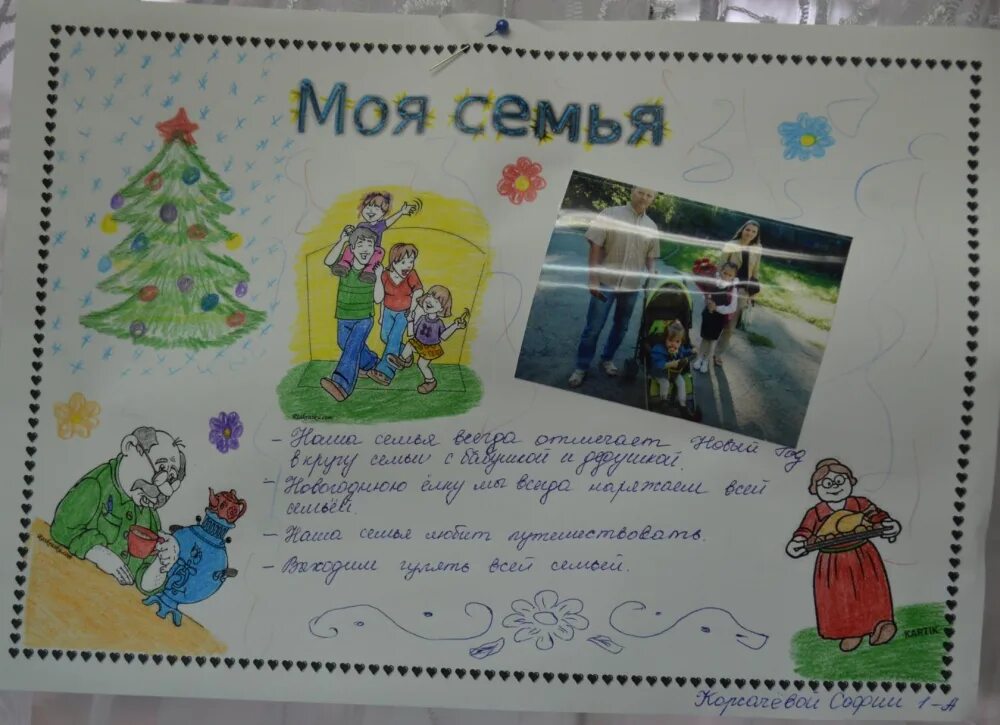 Моя семья
- Наша семья всегда отмечает Новый Год
в кругу семьи с бабушкой и дедушкой.
- Новогоднюю ёлку мы всегда наряжаем всей
семьёй.
- Наша семья любит путешествовать.
- Выходим гулять всей семьёй.
KARTIK
Корсачевой Софии 1-А